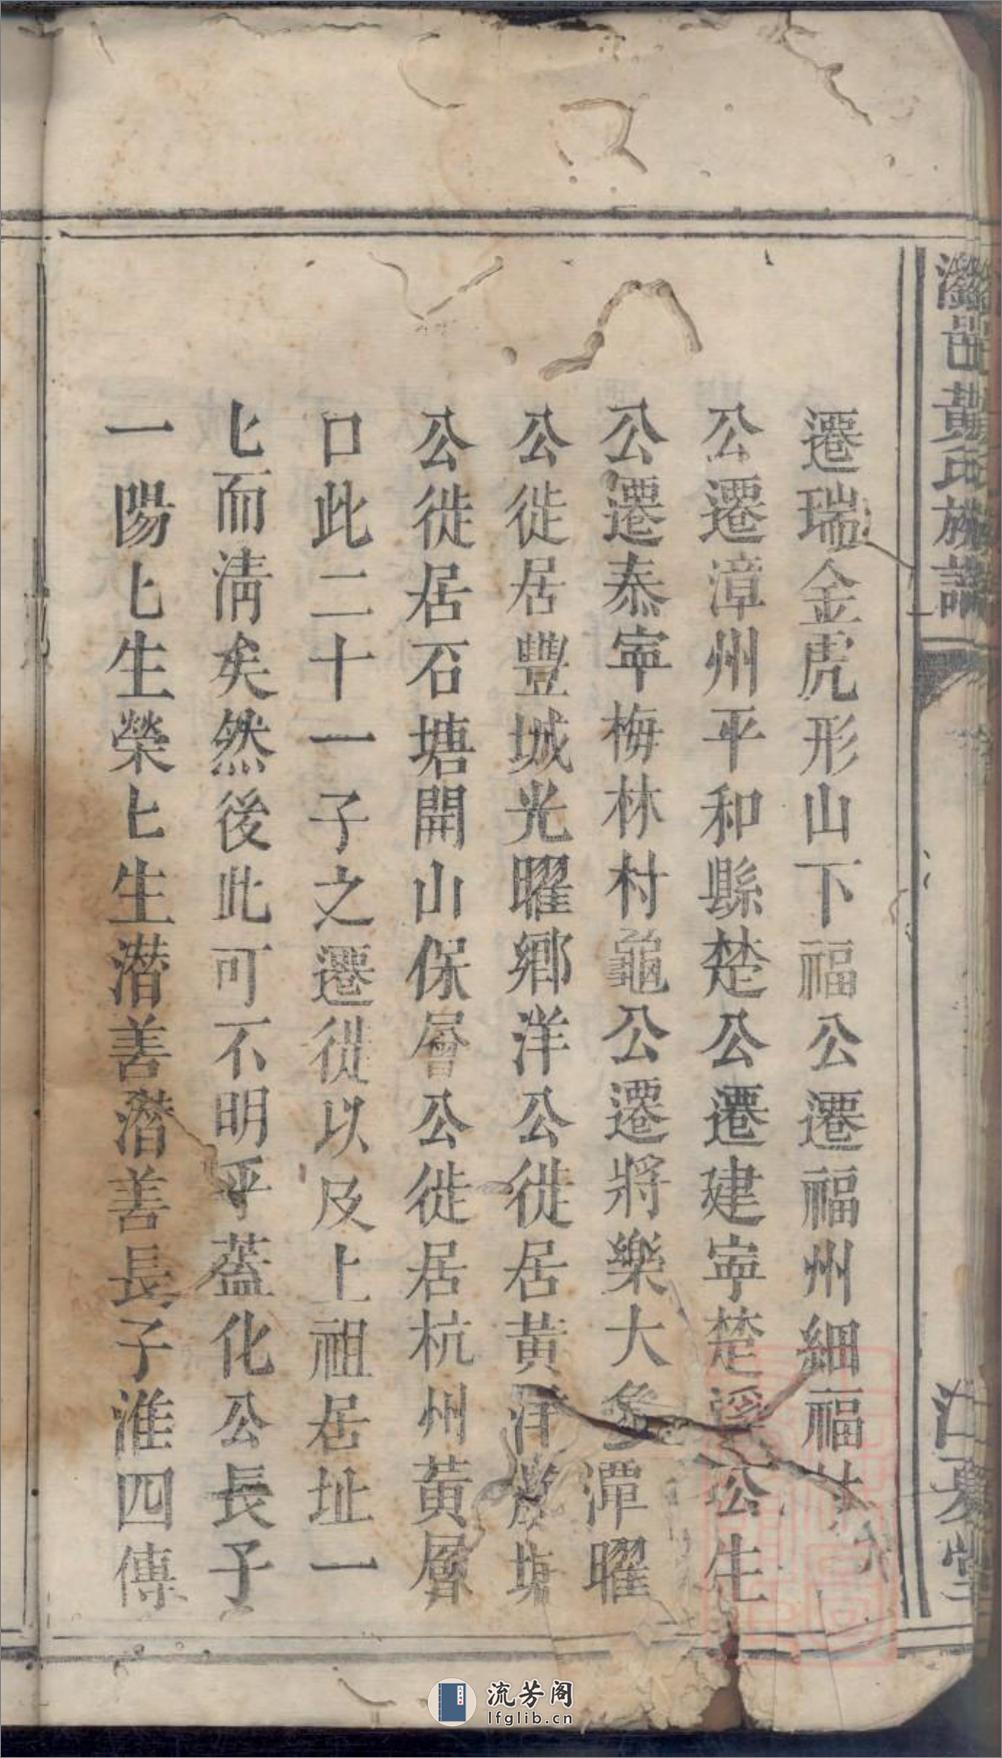 黃氏族譜
江夏堂
遷瑞金虎形山下福公遷福州細福
公遷漳州平和縣楚公遷建寧楚溪公生
公遷泰寕梅林村龜公遷將樂大 潭曜
公徙居豐城光曜鄉洋公徙居黃 塘
公徙居石塘開山保層公徙居杭州黃層
口此二十一子之遷徙以及上祖居址一
匕而淸矣然後此可不明乎蓋化公長子
一陽匕生榮匕生濳善濳善長子淮四傳
流芳阁
lfglib.cn